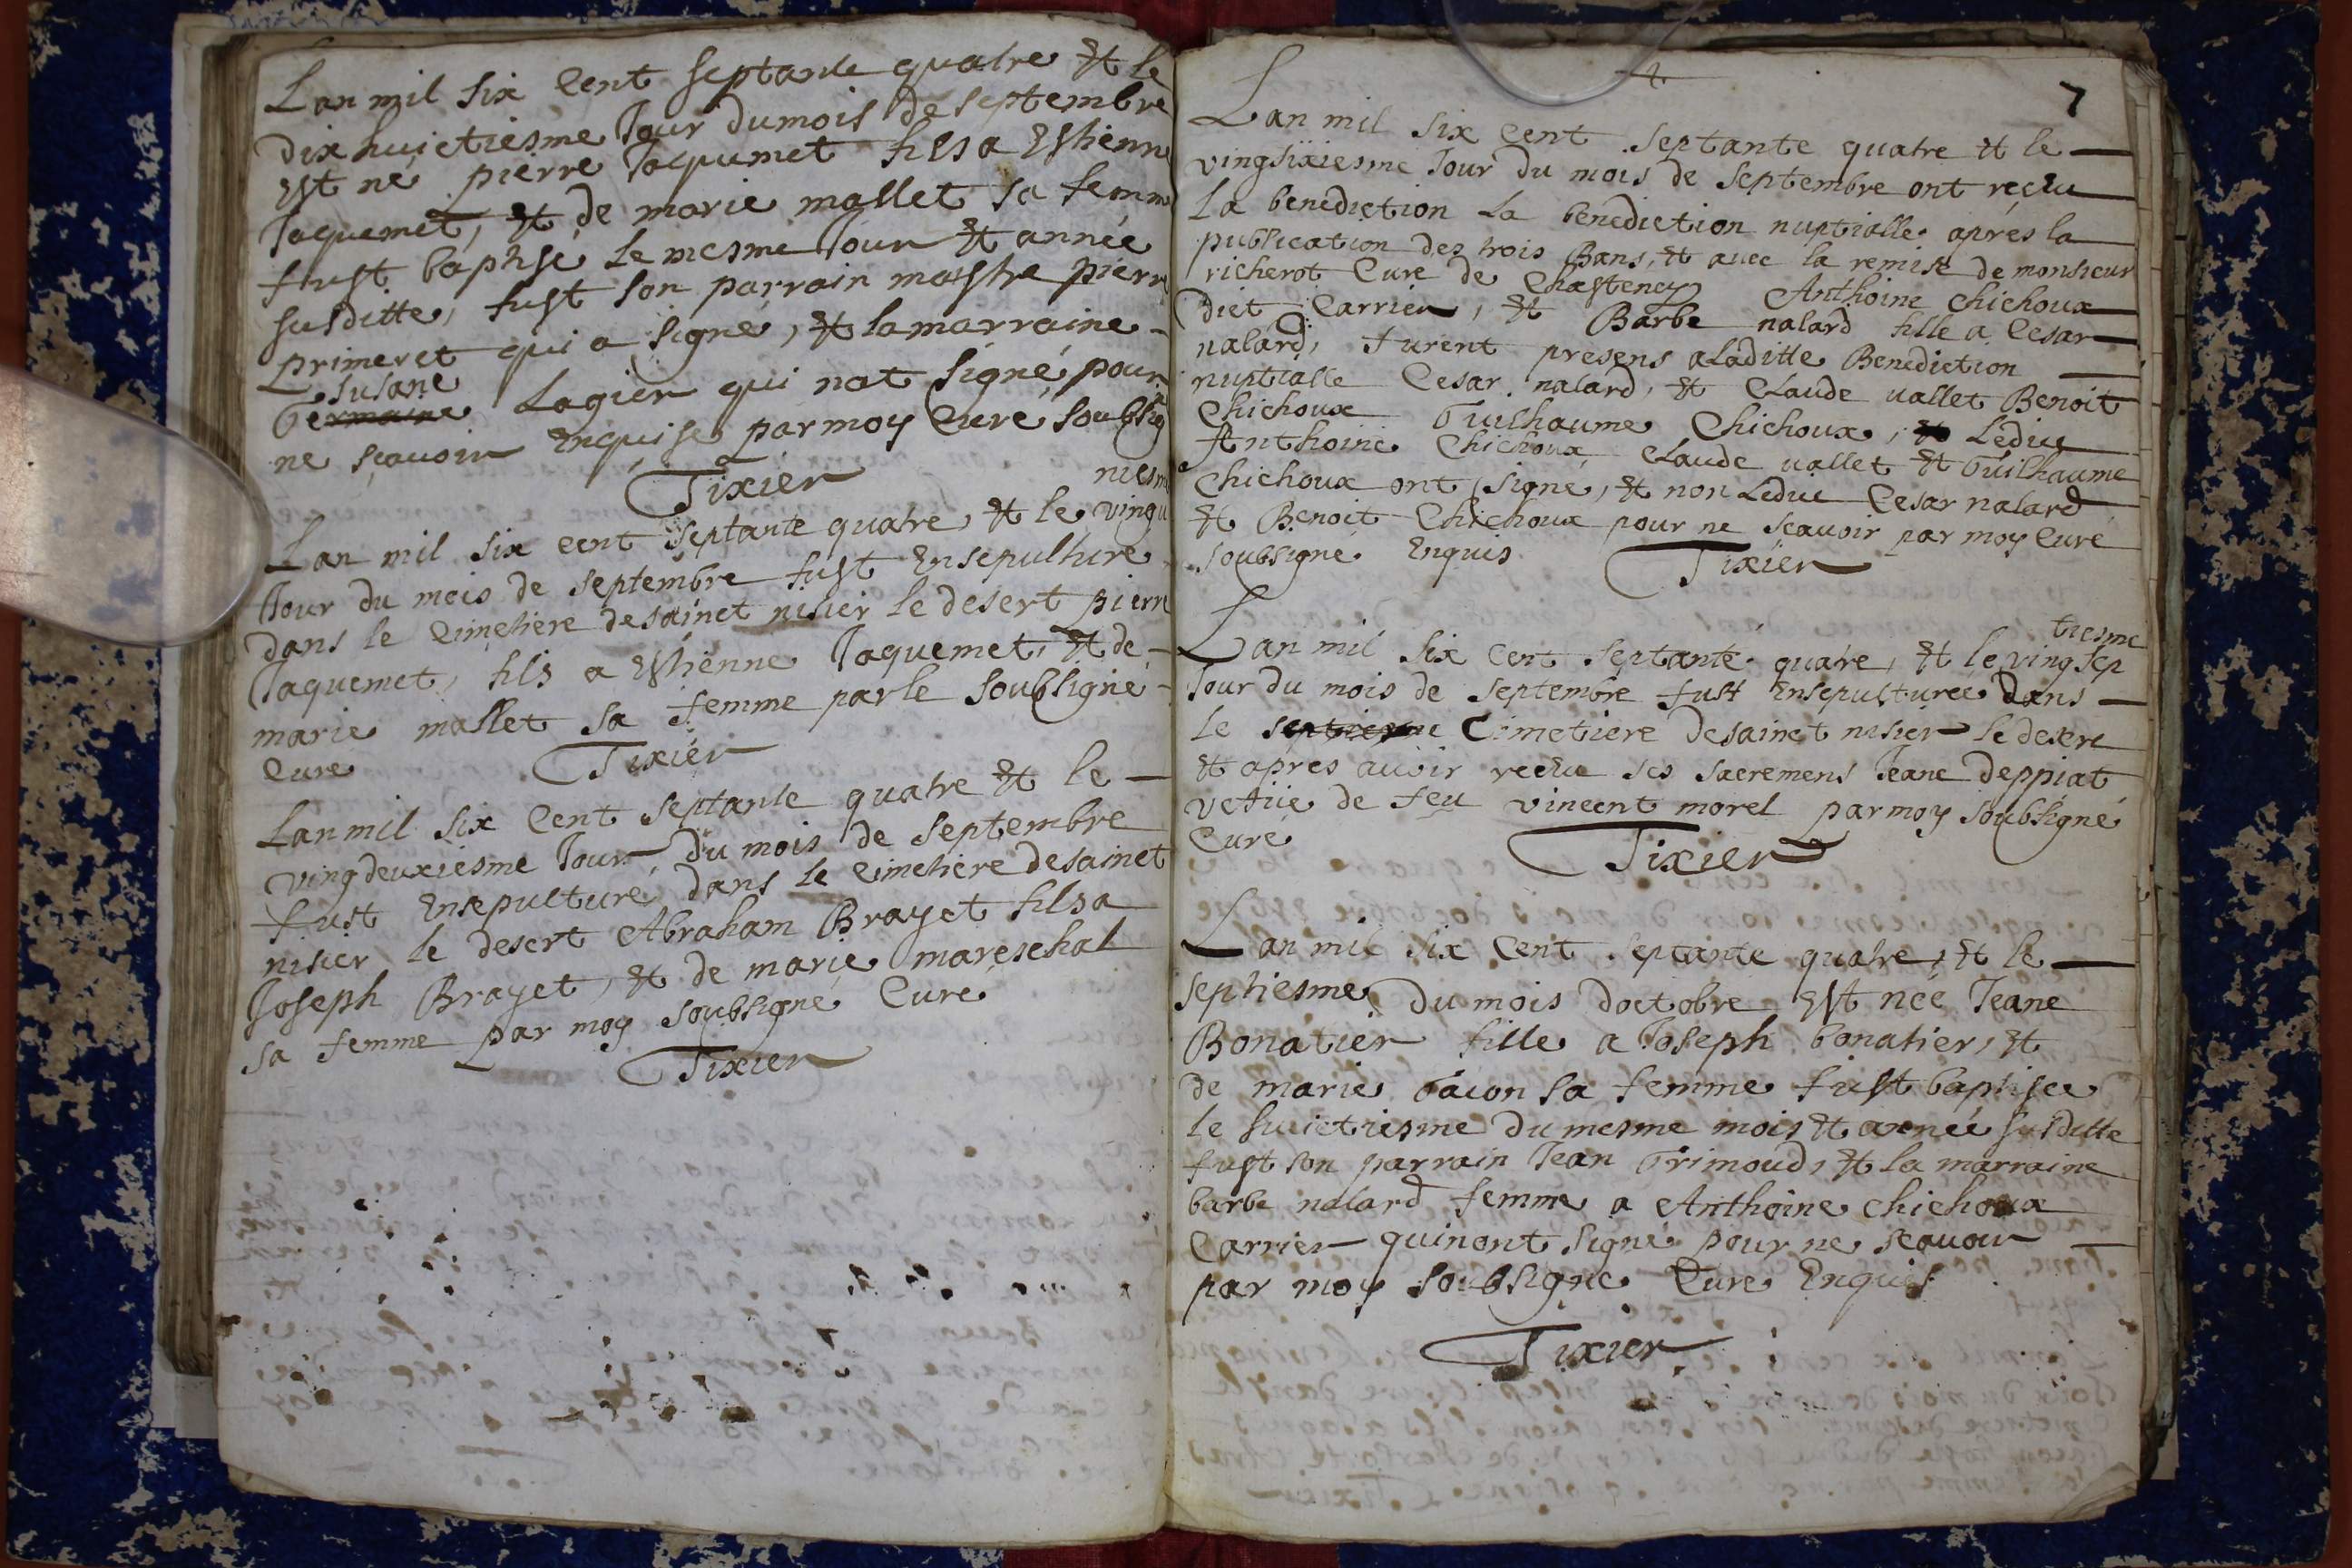 Lan mil six Cent septante quatre Et le
dixhuictiesme Jour dumois de septembre
Est né pierre Jaqumet fils a Esthienne
Jaquemet, Et de marie mallet sa femme
fust baptisé le mesme Jour Et année
susditte, fust son parrain maistre pierre
primeret qui a signé, Et lamarraine
susane
Germaine Lagier qui nat signé pour
ne scauoir Enquise par moy Curé soubsig
Tixier
niesme
Lan mil six cent septante quatre, Et le vingu
Jour du mois de septembre fust Ensepulturé
dans le Cimetiere desainct nisier le desert pierre
Jaquemet, fils a Esthienne Jaquemet, Et de
marie mallet sa femme parle soubsigné
Curé
Tixier
Lanmil six Cent septante quatre Et le
vingdeuxiesme Jour du mois de septembre
fust Ensepulturé dans le Cimetiere desainct
nisier le desert Abraham Brayet fils a
Joseph Brayet, Et de marie mareschal
sa femme par moy soubsigné Curé
Tixier
7
Lan mil six cent septante quatre Et le
vingsixiesme Jour du mois de septembre ont reçeu
La benediction La benediction nuptialle après la
publication des trois Bans, Et auec la remise de monsieur
richerot Curé de Chasteney Anthoine Chichoux
dict Carrier, Et Barbe nalard fille a Cesar
nalard, furent presens aLaditte Benediction
nuptialle Cesar nalard, Et Claude vallet Benoit
Chichoux Guilhaume Chichoux, Et Leduc
Anthoine Chichoux Claude vallet Et Guilhaume
Chichoux ont signé, Et non Leduc Cesar nalard
Et Benoit Chichoux pour ne scauoir par moy Curé
soubsigné Enquis
Tixier
tiesme
Lan mil six Cent septante quatre, Et le vingsep
Jour du mois de septembre fust Ensepulturee dans
le septiesme Cimetiere desainct nisier le desert
Et apres auoir reçeu ses sacremens Jeane deppiat
vefue de feu vincent morel par moy soubsigné
Curé
Tixier
Lan mil six Cent septante quatre, Et le
septiesme du mois doctobre Est née Jeane
Bonatier fille a Joseph bonatier, Et
de marie bacon sa femme fust baptisee
le huictiesme du mesme mois Et année susditte
fust son parrain Jean Grimoud, Et la marraine
barbe nalard femme a Anthoine Chichoux
Carrier quinont signé pour ne scauoir
par moy soubsigné Curé Enquis
Tixier